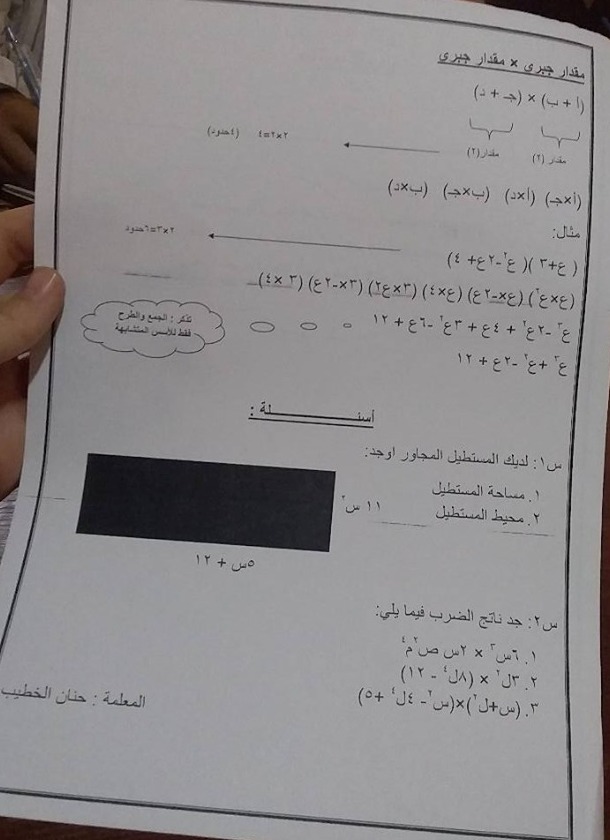 مقدار جبري × مقدار جبري
(أ + ب) × (جـ + د)
مقدار (٢) مقدار(٢)
٢×٢=٤ (٤حدود)
(أ×جـ) (أ×د) (ب×جـ) (ب×د)
مثال:
( ع+٣ )( ع٢-٢ع+ ٤)
٢×٣=٦حدود
(ع×ع٢) (ع×-٢ع) (ع×٤) (٣×ع٢) (٣×-٢ع) (٣ ×٤)
ع٣ -٢ع٢ + ٤ع + ٣ع٢ -٦ع + ١٢
ع٣ +ع٢ -٢ع + ١٢
تذكر : الجمع والطرح
فقط للأسس المتشابهة
أسئـــــــــلة :
س١: لديك المستطيل المجاور اوجد:
١. مساحة المستطيل
٢. محيط المستطيل
١١ س٢
٥س + ١٢
س٢: جد ناتج الضرب فيما يلي:
١. ٦س٣ × ٢س ص٢م٤
٢. ٣ل٢ × (٨ل٤ - ١٢)
٣. (س+ل٢)×(س٢-٤ل٤ +٥)
المعلمة : حنان الخطيب